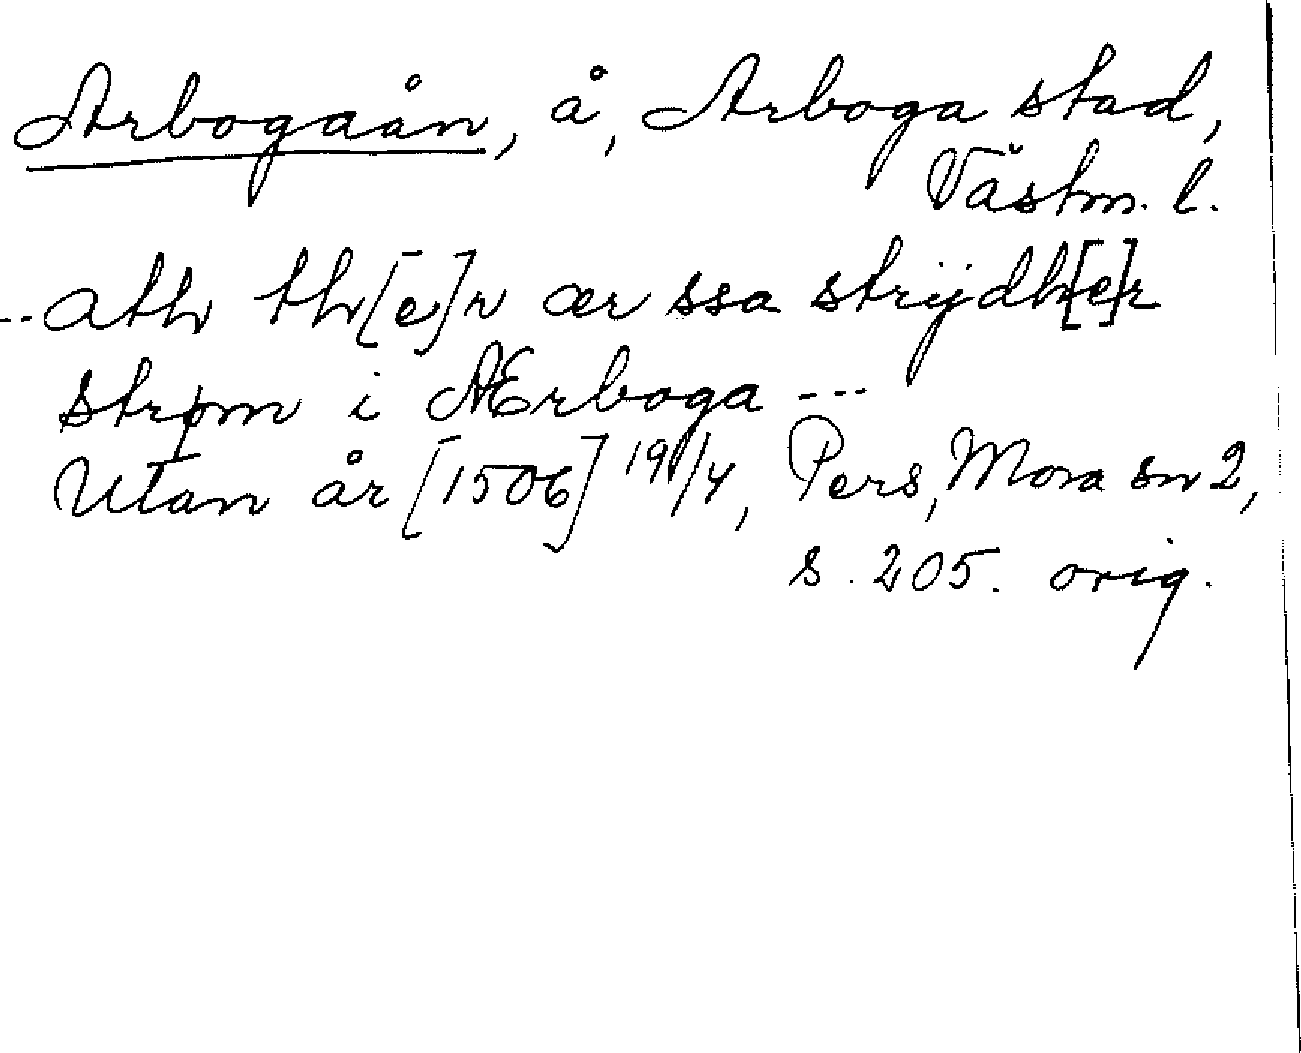 Arbogaån, å, Arboga stad,
Västm. l.
...ath th[e]r ær ssa strijdh[e]r
strøm i Ærboga ---
Utan år [1506] 19/4, Pers, Mora sn 2,
s. 205. orig.